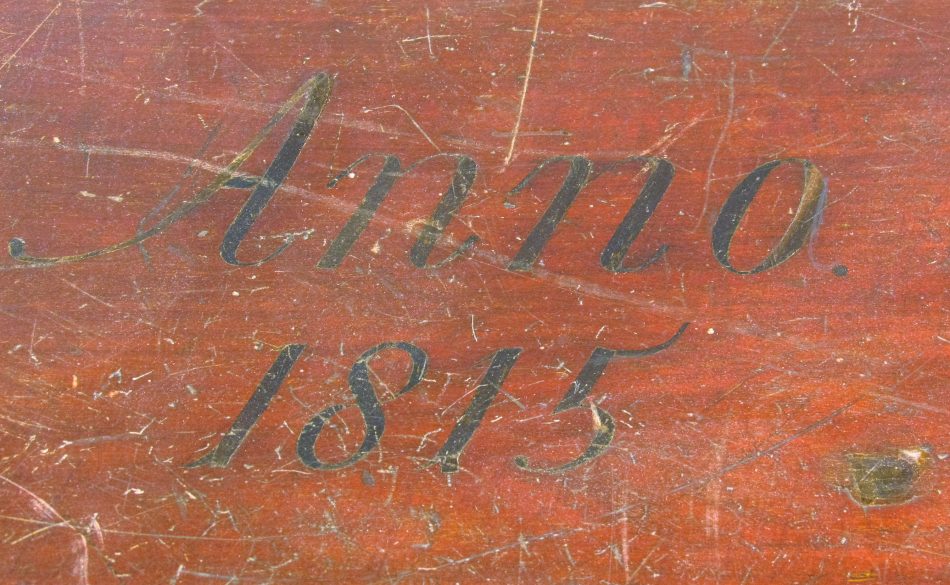 Anno.
1815